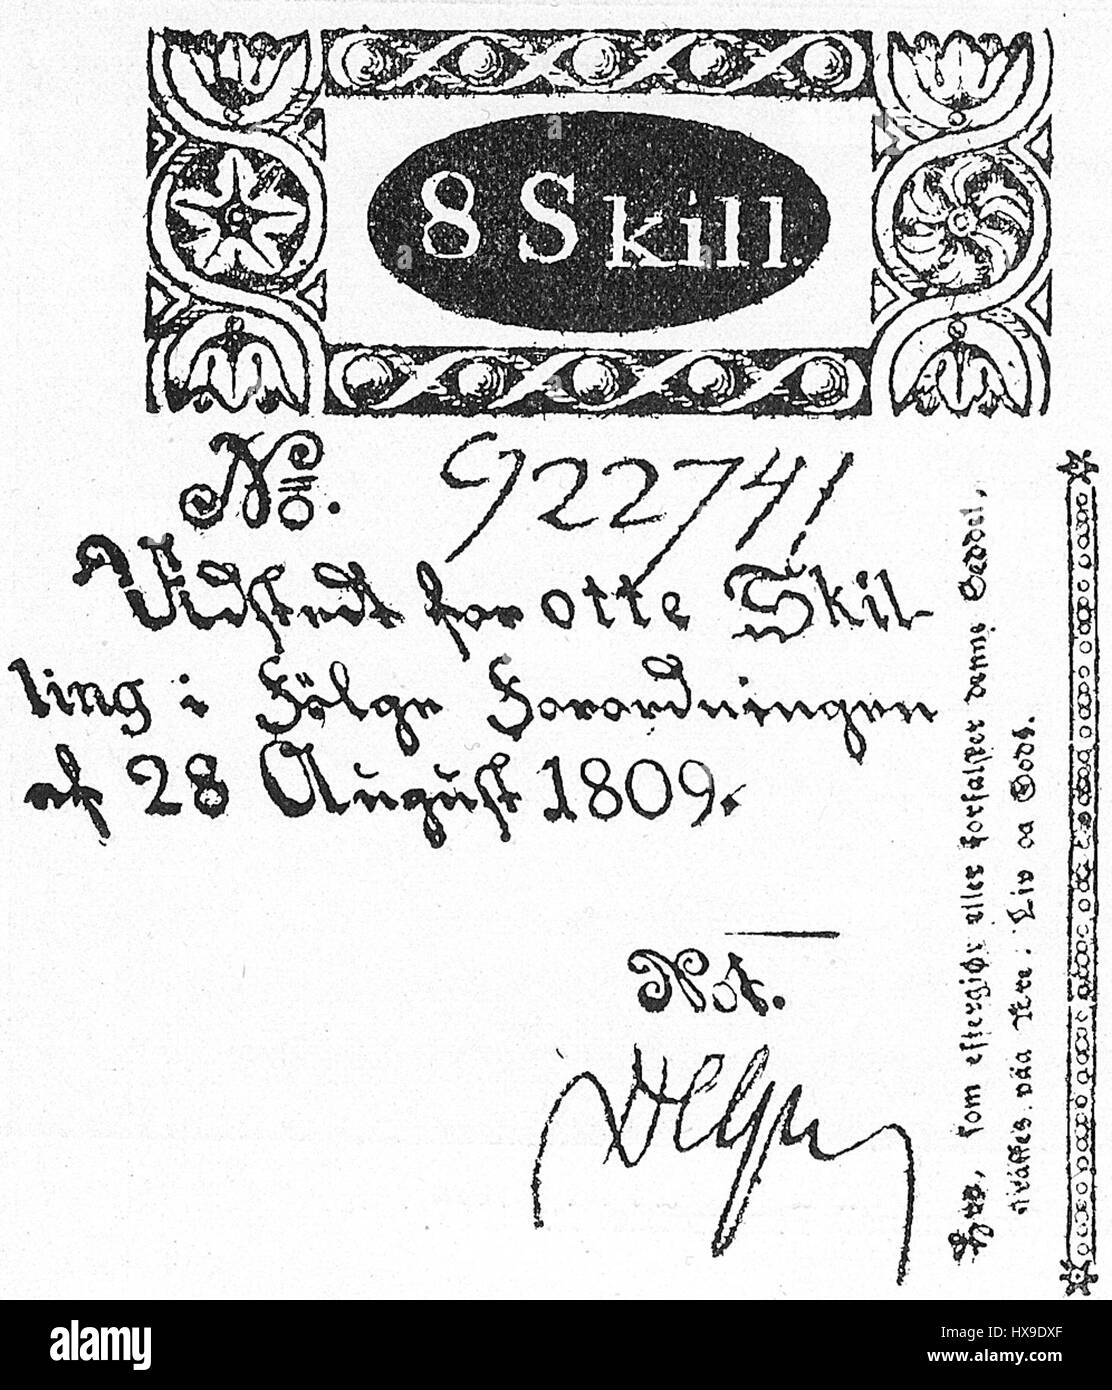 8 Skill.
No. 922741
Udstedt for otte Skil-
ling i Fölge Forordningen
af 28 August 1809.
Not.
Hver, som eftergiør eller forfalsker denne Seddel,
straffes paa Ære, Liv og Gods.
alamy
Image ID: HX9DXF
www.alamy.com